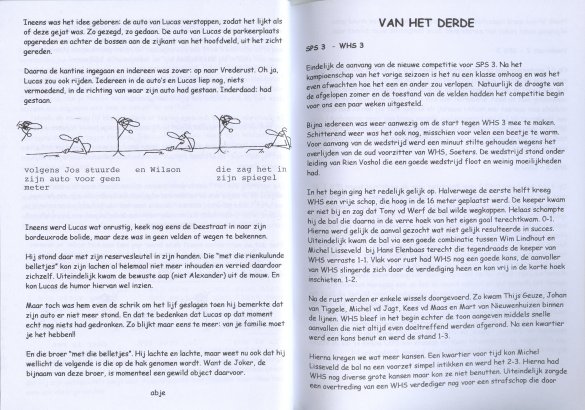 Ineens was het idee geboren: de auto van Lucas verstoppen, zodat het lijkt als
of deze gejat was. Zo gezegd, zo gedaan. De auto van Lucas de parkeerplaats
opgereden en achter de bossen aan de zijkant van het hoofdveld, uit het zicht
gereden.
Daarna de kantine ingegaan en iedereen was zover: op naar Vrederust. Oh ja,
Lucas zou ook rijden. Iedereen in de auto's en Lucas liep nog, niets
vermoedend, in de richting van waar zijn auto had gestaan. Inderdaad: had
gestaan.
volgens Jos stuurde
zijn auto voor geen
meter
en Wilson
die zag het in
zijn spiegel
Ineens werd Lucas wat onrustig, keek nog eens de Deestraat in naar zijn
bordeuxrode bolide, maar deze was in geen velden of wegen te bekennen.
Hij stond daar met zijn reservesleutel in zijn handen. Die "met die rienkulunde
belletjes" kon zijn lachen al helemaal niet meer inhouden en verried daardoor
zichzelf. Uiteindelijk kwam de bewuste aap (niet Alexander) uit de mouw. En
kon Lucas de humor hiervan wel inzien.
Maar toch was hem even de schrik om het lijf geslagen toen hij bemerkte dat
zijn auto er niet meer stond. En dat te bedenken dat Lucas op dat moment
echt nog niets had gedronken. Zo blijkt maar eens te meer: van je familie moet
je het hebben!!
En die broer "met die belletjes". Hij lachte en lachte, maar weet nu ook dat hij
wellicht de volgende is die op de hak genomen wordt. Want de Joker, de
bijnaam van deze broer, is momenteel een gewild object daarvoor.
abje
VAN HET DERDE
SPS 3 - WHS 3
Eindelijk de aanvang van de nieuwe competitie voor SPS 3. Na het
kampioenschap van het vorige seizoen is het nu een klasse omhoog en was het
even afwachten hoe het een en ander zou verlopen. Natuurlijk de droogte van
de afgelopen zomer en de toestand van de velden hadden het competitie begin
voor ons een paar weken uitgesteld.
Bijna iedereen was weer aanwezig om de start tegen WHS 3 mee te maken.
Schitterend weer was het ook nog, misschien voor velen een beetje te warm.
Voor aanvang van de wedstrijd werd een minuut stilte gehouden wegens het
overlijden van de oud voorzitter van WHS, Soeters. De wedstrijd stond onder
leiding van Rien Voshol die een goede wedstrijd floot en weinig moeilijkheden
had.
In het begin ging het redelijk gelijk op. Halverwege de eerste helft kreeg
WHS een vrije schop, die hoog in de 16 meter geplaatst werd. De keeper kwam
er niet bij en zag dat Tony vd Werf de bal wilde wegkoppen. Helaas schampte
hij de bal die daarna in de verre hoek van het eigen goal terechtkwam. 0-1.
Hierna werd gelijk de aanval gezocht wat niet gelijk resulteerde in succes.
Uiteindelijk kwam de bal via een goede combinatie tussen Wim Lindhout en
Michel Lisseveld bij Hans Elenbaas terecht die tegendraads de keeper van
WHS verraste 1-1. Vlak voor rust had WHS nog een goede kans, de aanvaller
van WHS slingerde zich door de verdediging heen en kan vrij in de korte hoek
inschieten. 1-2.
Na de rust werden er enkele wissels doorgevoerd. Zo kwam Thijs Geuze, Johan
van Tiggele, Michel vd Jagt, Kees vd Maas en Mart van Nieuwenhuizen binnen
de lijnen. WHS bleef in het begin echter de toon aangeven middels snelle
aanvallen die niet altijd even doeltreffend werden afgerond. Na een kwartier
werd een kans benut en werd de stand 1-3.
Hierna kregen we wat meer kansen. Een kwartier voor tijd kon Michel
Lisseveld de bal na een voorzet simpel intikken en werd het 2-3. Hierna had
WHS nog diverse grote kansen maar kon ze niet benutten. Uiteindelijk zorgde
een overtreding van een WHS verdediger nog voor een strafschop die door